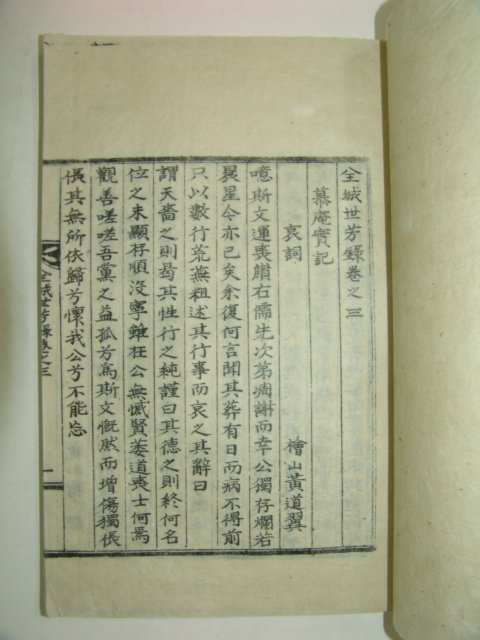 全城世芳錄卷之三
慕庵實記
哀詞
檜山黃道翼
噫斯文運喪嶺右儒先次第凋謝而幸公獨存爛若
晨星今亦已矣余復何言聞其葬有日而病不得前
只以數行荒蕪粗述其行事而哀之其辭曰
謂天嗇之則曷其性行之純謹曰其德之則終何名
位之未顯存順沒寧雖在公無憾賢萎道喪士何焉
觀善嗟嗟吾黨之益孤兮爲斯文慨然而增傷獨倀
倀其無所依歸兮懷我公兮不能忘
全城世芳錄卷之三
一